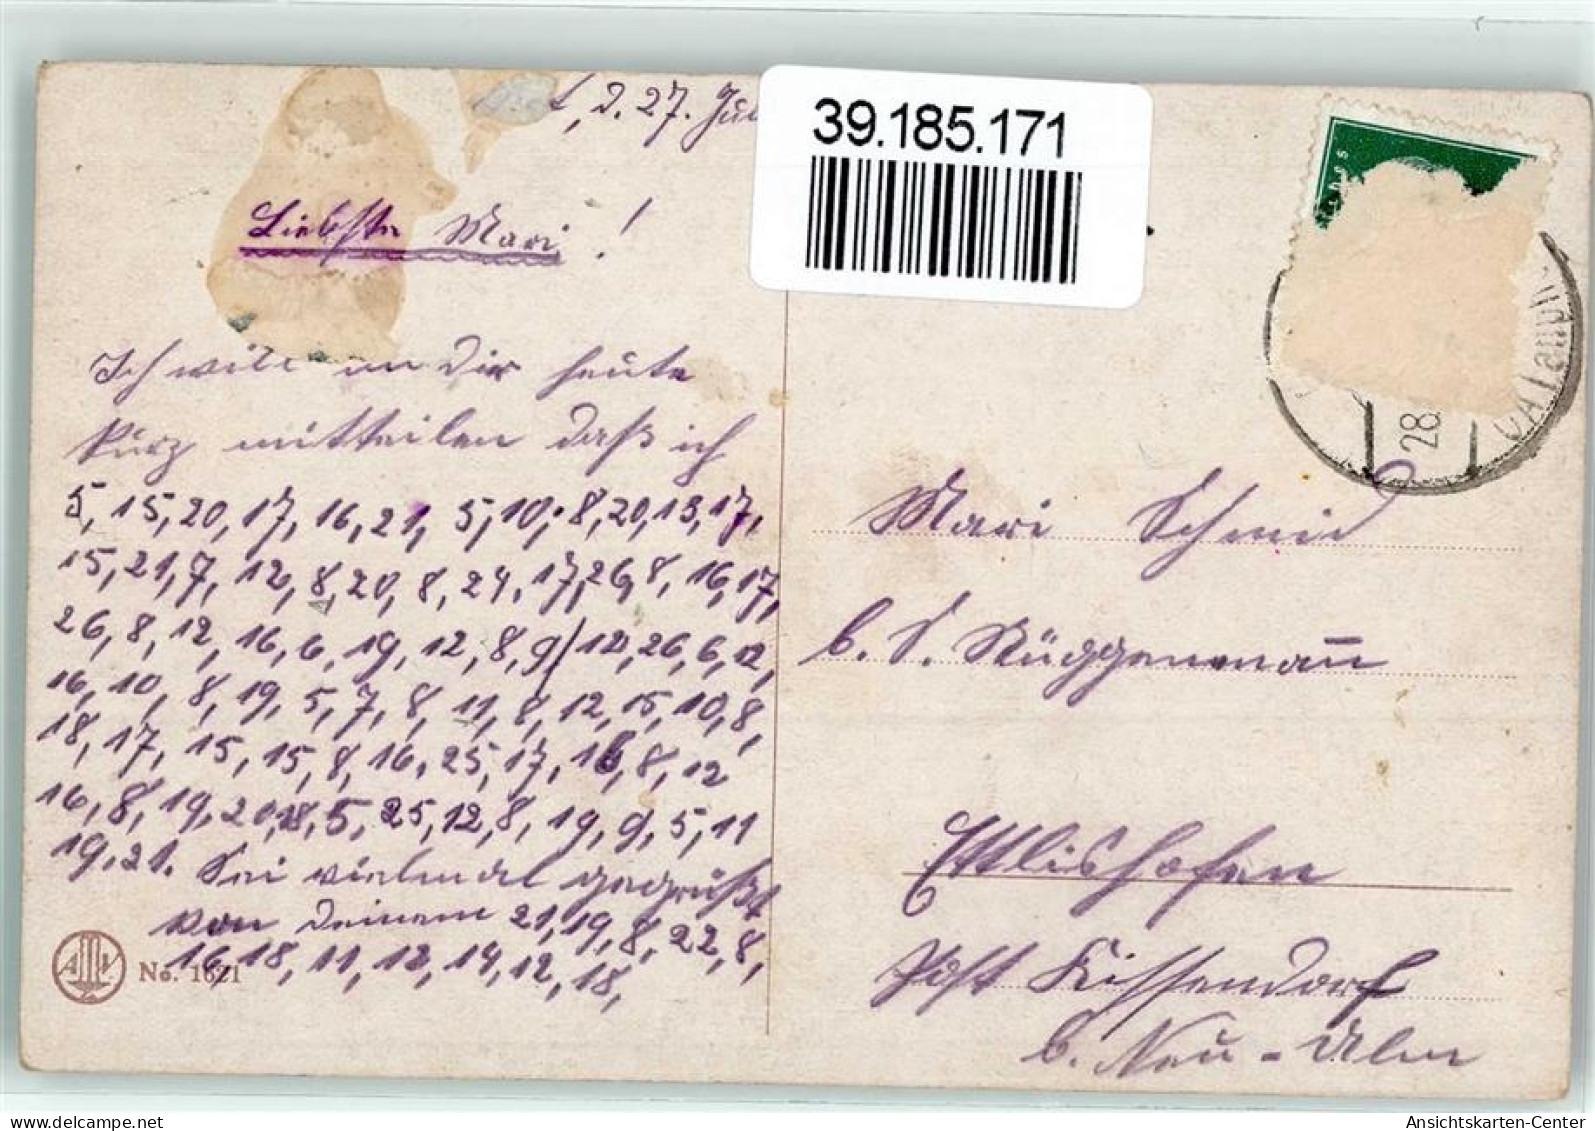 t, d. 27. Jul
39.185.171
Liebste Mari !
Ich will an Dir heute
kurz mitteilen daß ich
5, 15, 20, 17, 16, 21, 5, 10, 8, 20, 13, 17,
15, 21, 7, 12, 8, 20, 8, 24, 17, 26, 8, 16, 17,
26, 8, 12, 16, 6, 19, 12, 8, 9/ 12, 26, 6, 12,
16, 10, 8, 19, 5, 7, 8, 11, 8, 12, 15, 10, 8,
18, 17, 15, 15, 8, 16, 25, 17, 16, 8, 12
16, 8, 19, 20, 18, 5, 25, 12, 8, 19, 9, 5, 11
19, 21. Sei vielmal gegrüßt
von Deinem 21, 19, 8, 22, 8,
16, 18, 11, 12, 14, 12, 18,
No. 1621
28
Mari Schmid
b. S. Rüggenmann
Ettlishofen
Post Kissendorf
b. Neu-Ulm
Ansichtskarten-Center